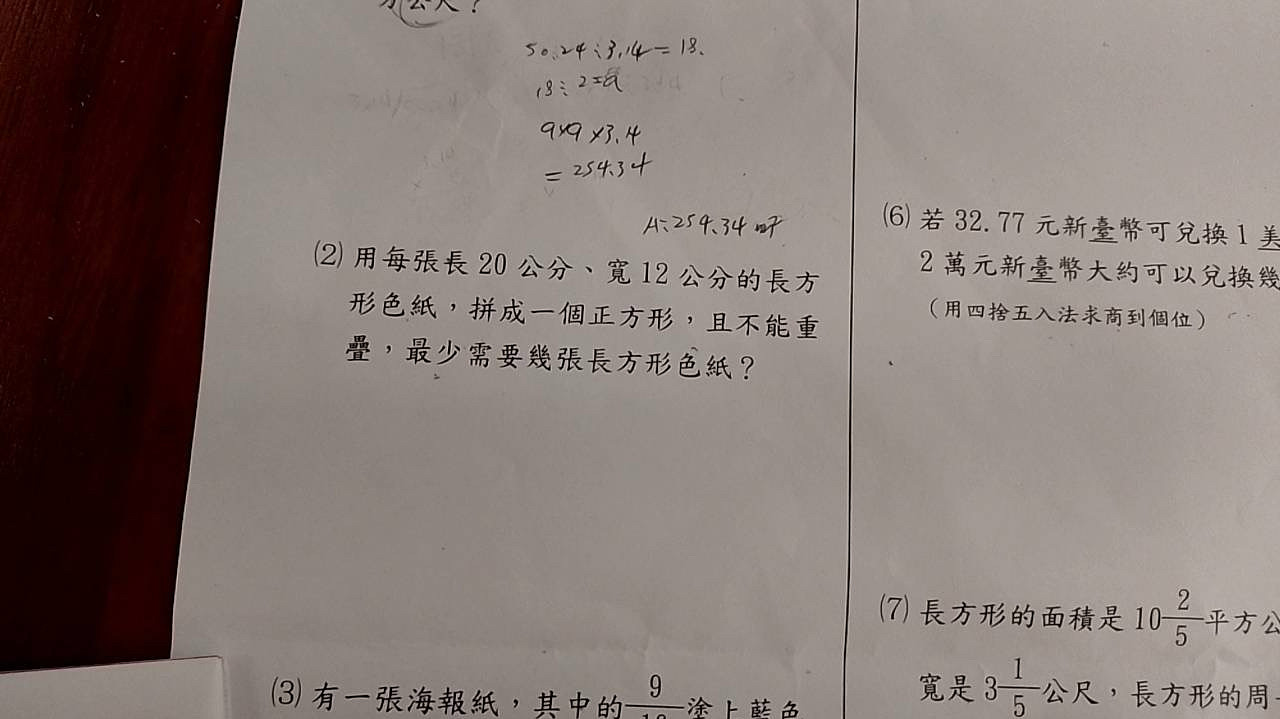 方公尺？
50.24÷3.14=18.
18÷2=9
9×9×3.14
=254.34
A:254.34㎡
(2) 用每張長 20 公分、寬 12 公分的長方
形色紙，拼成一個正方形，且不能重
疊，最少需要幾張長方形色紙？
(3) 有一張海報紙，其中的 9 塗上藍色
(6) 若 32.77 元新臺幣可兌換 1 美
2 萬元新臺幣大約可以兌換幾
（用四捨五入法求商到個位）
(7) 長方形的面積是 10 2/5 平方公
寬是 3 1/5 公尺，長方形的周